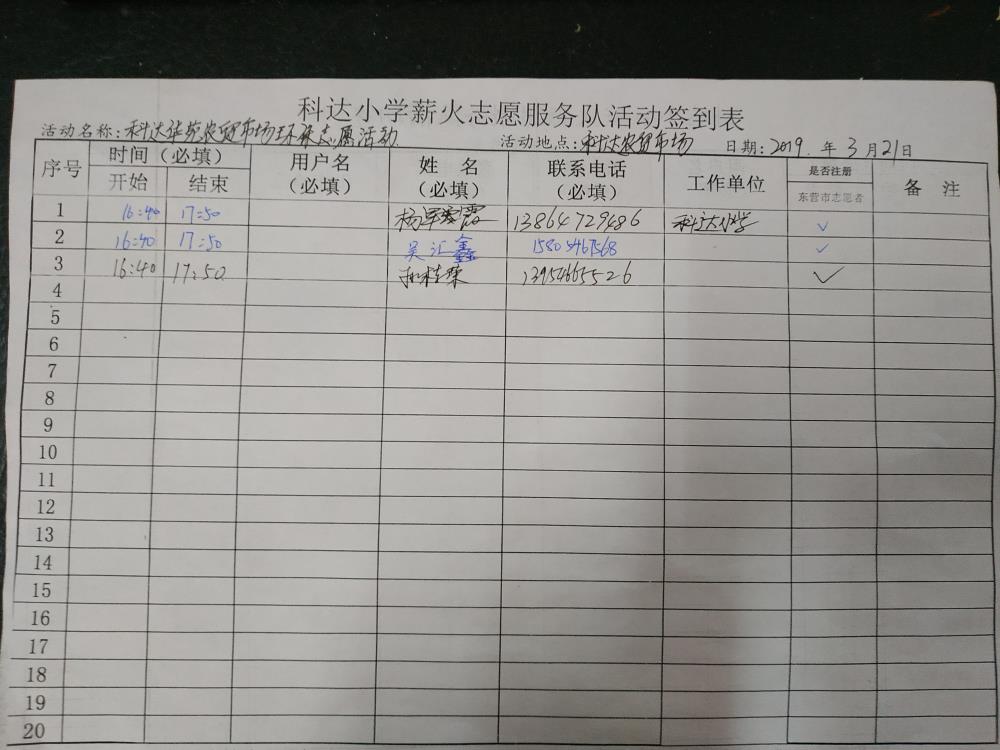 科达小学薪火志愿服务队活动签到表
活动名称:科达华苑农贸市场环保志愿活动
活动地点:科达农贸市场 日期:2019年3月21日
序号 时间(必填) 用户名(必填) 姓名(必填) 联系电话(必填) 工作单位 是否注册东营市志愿者 备注
开始 结束
1 16:40 17:50 杨 霞 13864729486 科达小学 ✓
2 16:40 17:50 吴汇鑫 15805467568 ✓
3 16:40 17:50 桂荣 13954665526 ✓
4
5
6
7
8
9
10
11
12
13
14
15
16
17
18
19
20